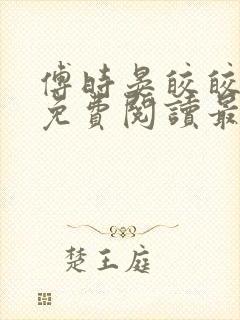 傅時晏皎皎
免費閱讀最
楚王庭